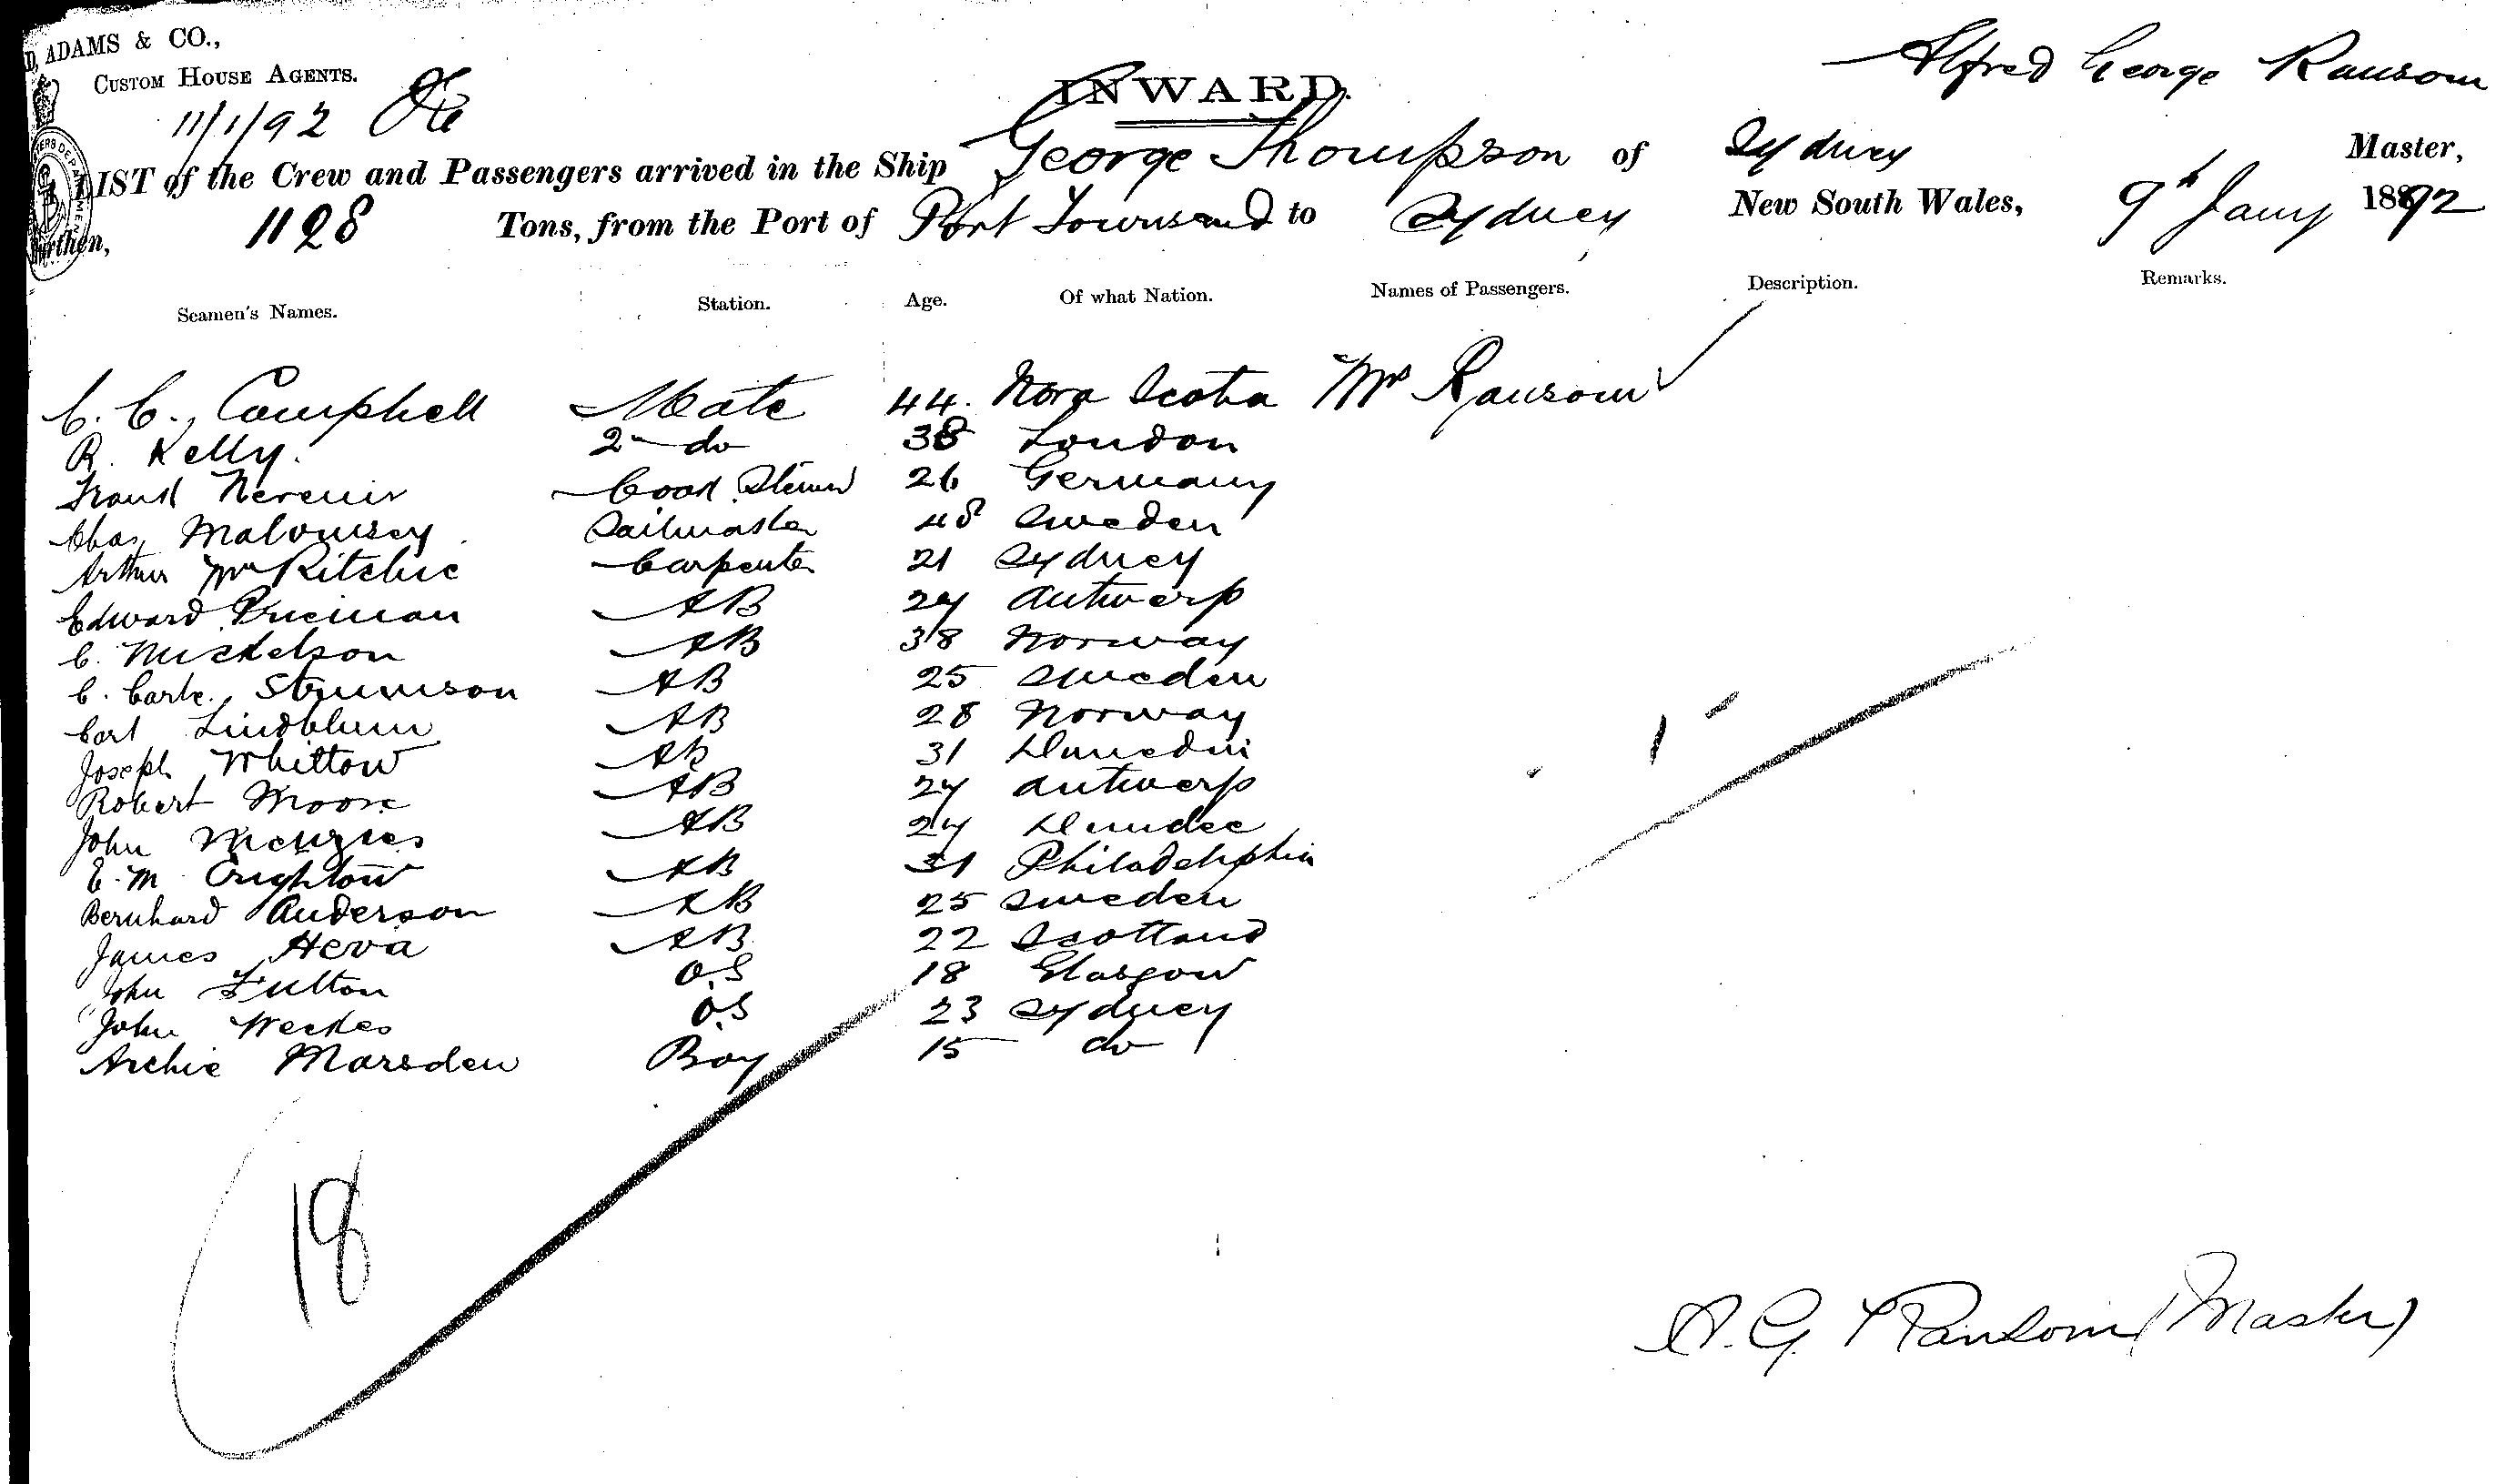 D, ADAMS & CO.,
CUSTOM HOUSE AGENTS.
11/1/92
INWARD.
Alfred George Ransom
LIST of the Crew and Passengers arrived in the Ship George Thompson of Sydney Master,
Burthen, 1128 Tons, from the Port of Port Townsend to Sydney New South Wales, 9th Jany 1892
Seamen's Names. Station. Age. Of what Nation. Names of Passengers. Description. Remarks.
C. C. Campbell Mate 44. Nova Scotia Mrs Ransom
R. Kelly. 2nd do 38 London
Frank Cook Steward 26 Germany
Chas Sailmaker 48 Sweden
Arthur McRitchie Carpenter 21 Sydney
Edward AB 24 Antwerp
C. Mickelson AB 38 Norway
C. AB 25 Sweden
Carl Lindblum AB 28 Norway
Joseph Whitton AB 31 Dunedin
Robert Moore AB 24 Antwerp
John Menzies AB 24 Dundee
E. M Crighton AB 31 Philadelphia
Bernhard Anderson AB 25 Sweden
James Heva AB 22 Scotland
John Fulton O.S 18 Glasgow
John Weekes O.S 23 Sydney
Archie Marsden Boy 15 do
18
A. G. Ransom (Master)